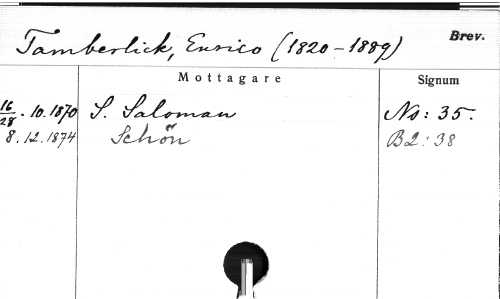 Tamberlick, Enrico (1820-1889) Brev.
Mottagare Signum
16/28 . 10. 1870 S. Saloman Ns: 35.
8. 12. 1874 Schön B2: 38